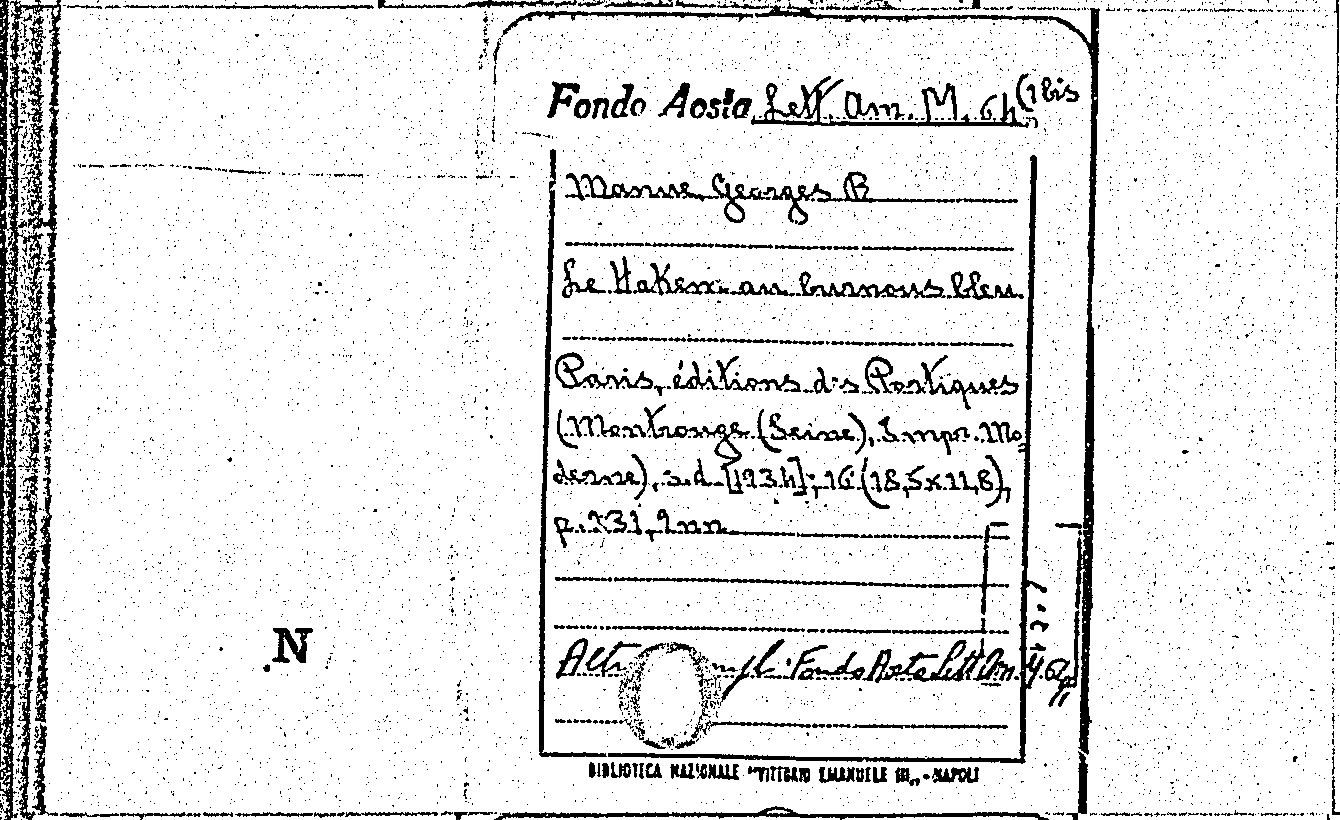 Fondo Aosta Lett. Am. M. 64 (1 bis
Manue Georges R
Le Hakem au burnous bleu.
Paris, éditions d's Portiques
(Montrouge (Seine), Impr. Mo-
derne), s.d. [1934]; 16° (18,5x11,8),
p. 231, 2 nn.
Fondo Aosta Lett. Am. M. 64
N
BIBLIOTECA NAZIONALE "VITTORIO EMANUELE III„ - NAPOLI